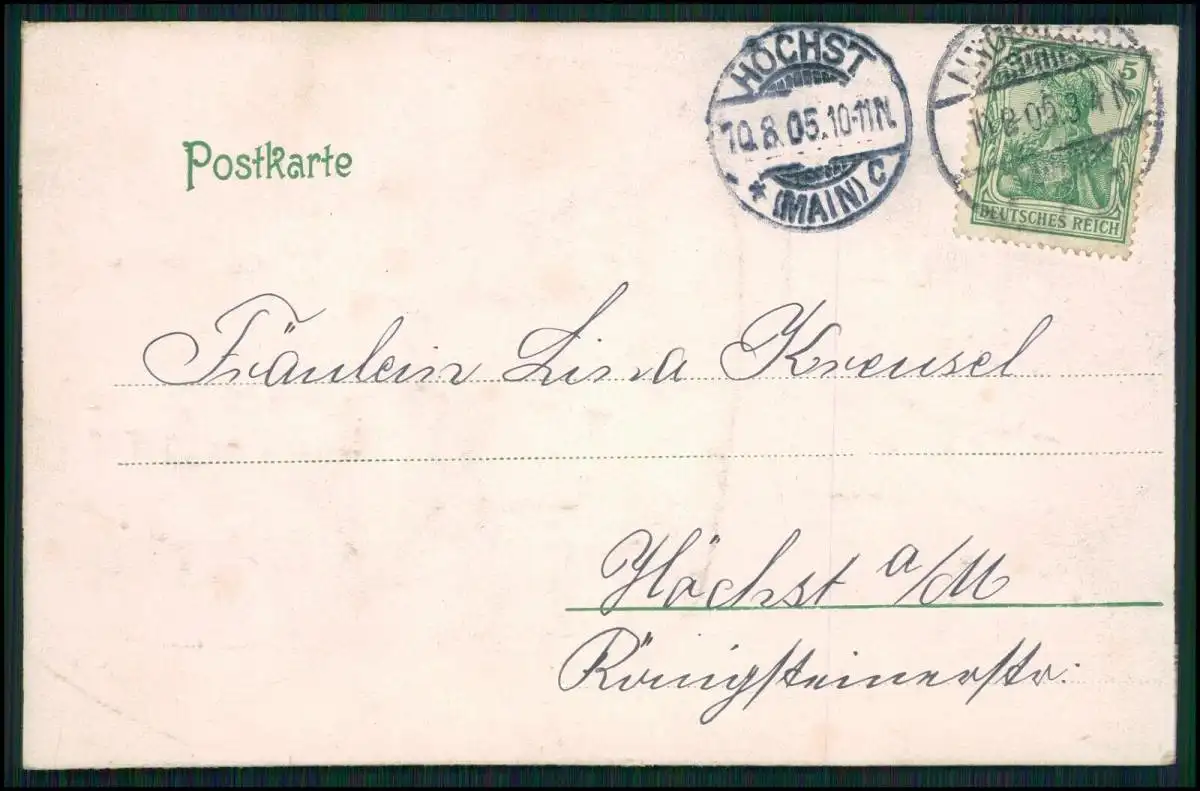 Postkarte
HÖCHST
10.8.05.10-11N.
* (MAIN) C
5
DEUTSCHES REICH
Fräulein Lina Kreusel
Höchst a/M
Königsteinerstr.